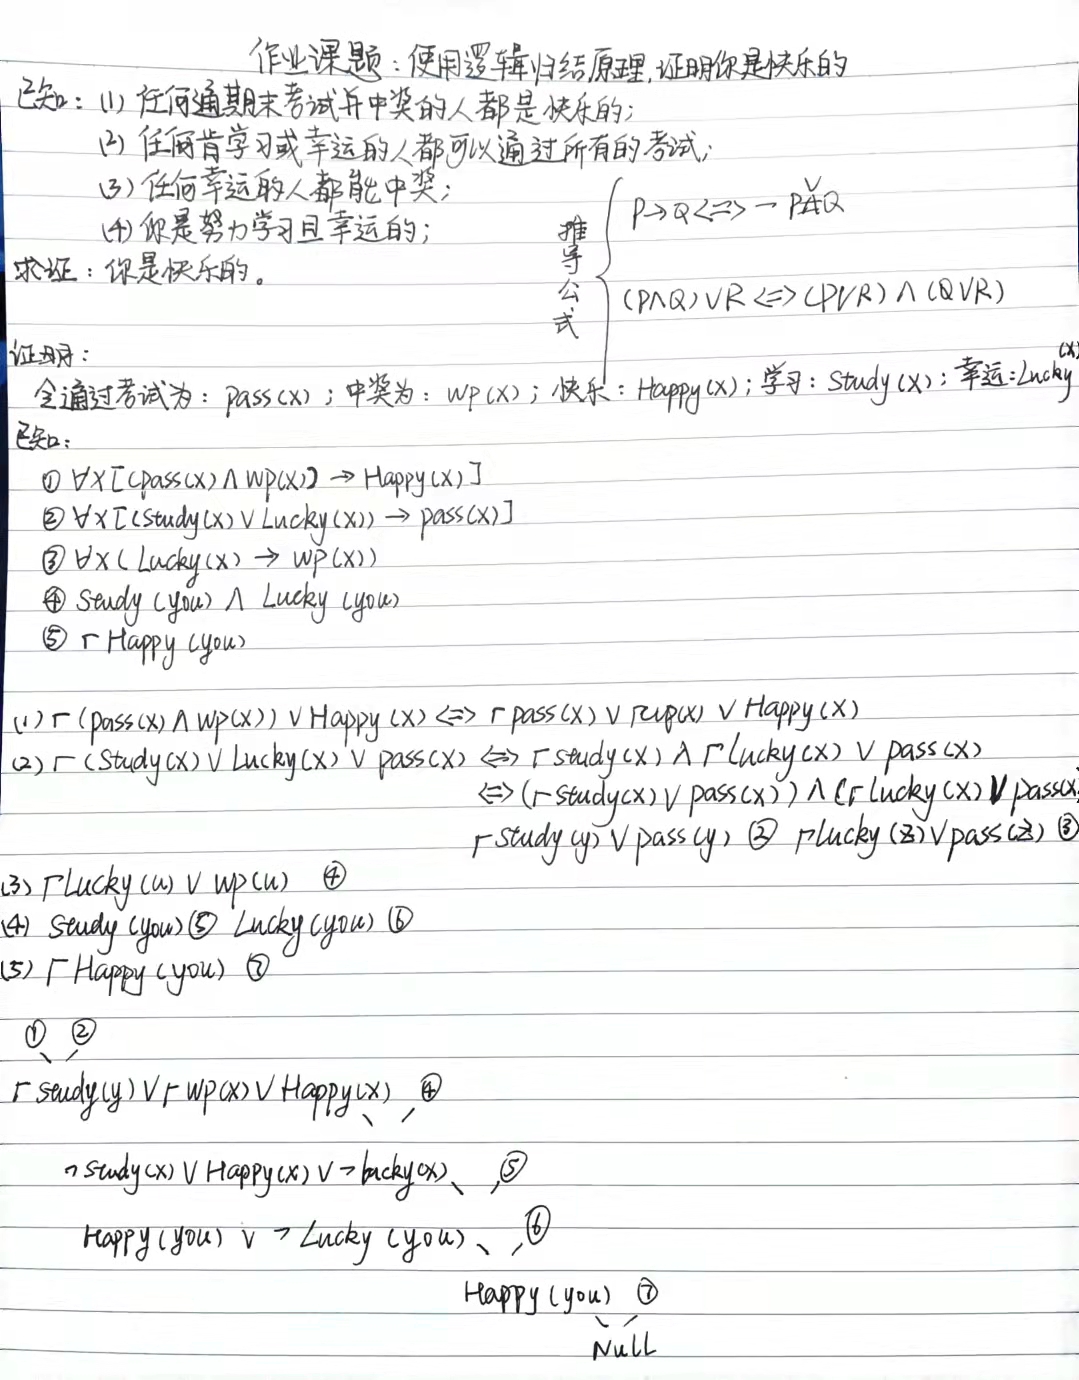 作业课题：使用逻辑归结原理，证明你是快乐的
已知：(1) 任何通期末考试并中奖的人都是快乐的；
(2) 任何肯学习或幸运的人都可以通过所有的考试；
(3) 任何幸运的人都能中奖；
(4) 你是努力学习且幸运的；
求证：你是快乐的。
推导公式
P→Q<=>¬P∨Q
(P∧Q)∨R<=>(P∨R)∧(Q∨R)
证明：
令通过考试为：pass(x)；中奖为：wp(x)；快乐：Happy(x)；学习：Study(x)；幸运：Lucky(x)
已知：
① ∀x[(pass(x)∧wp(x)]→Happy(x)]
② ∀x[(Study(x)∨Lucky(x))→pass(x)]
③ ∀x(Lucky(x)→wp(x))
④ Study(you)∧Lucky(you)
⑤ ┌Happy(you)
(1)┌(pass(x)∧wp(x))∨Happy(x)<=>┌pass(x)∨┌wp(x)∨Happy(x)
(2)┌(Study(x)∨Lucky(x)∨pass(x)<=>┌study(x)∧┌lucky(x)∨pass(x)
<=>(┌study(x)∨pass(x))∧(┌lucky(x)∨pass(x
┌study(y)∨pass(y) ② ┌lucky(z)∨pass(z) ③
(3)┌Lucky(u)∨wp(u) ④
(4) Study(you)⑤ Lucky(you)⑥
(5)┌Happy(you) ⑦
① ②
┌study(y)∨┌wp(x)∨Happy(x) ④
¬study(x)∨Happy(x)∨¬lucky(x) ⑤
Happy(you)∨¬Lucky(you) ⑥
Happy(you) ⑦
Null